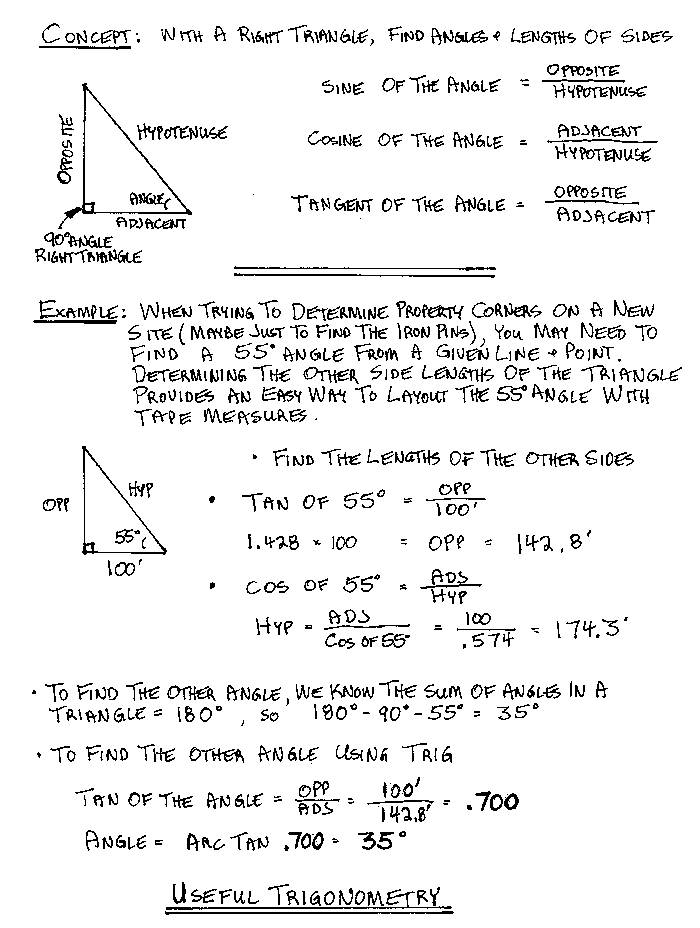 CONCEPT: WITH A RIGHT TRIANGLE, FIND ANGLES & LENGTHS OF SIDES
SINE OF THE ANGLE = OPPOSITE / HYPOTENUSE
COSINE OF THE ANGLE = ADJACENT / HYPOTENUSE
TANGENT OF THE ANGLE = OPPOSITE / ADJACENT
OPPOSITE
HYPOTENUSE
ANGLE
ADJACENT
90° ANGLE
RIGHT TRIANGLE
EXAMPLE: WHEN TRYING TO DETERMINE PROPERTY CORNERS ON A NEW
SITE (MAYBE JUST TO FIND THE IRON PINS), YOU MAY NEED TO
FIND A 55° ANGLE FROM A GIVEN LINE & POINT.
DETERMINING THE OTHER SIDE LENGTHS OF THE TRIANGLE
PROVIDES AN EASY WAY TO LAYOUT THE 55° ANGLE WITH
TAPE MEASURES.
OPP
HYP
55°
100'
• FIND THE LENGTHS OF THE OTHER SIDES
• TAN OF 55° = OPP / 100'
1.428 × 100 = OPP = 142.8'
• COS OF 55° = ADJ / HYP
HYP = ADJ / COS OF 55° = 100 / .574 = 174.3'
• TO FIND THE OTHER ANGLE, WE KNOW THE SUM OF ANGLES IN A
TRIANGLE = 180°, SO 180° - 90° - 55° = 35°
• TO FIND THE OTHER ANGLE USING TRIG
TAN OF THE ANGLE = OPP / ADJ = 100' / 142.8' = .700
ANGLE = ARC TAN .700 = 35°
USEFUL TRIGONOMETRY